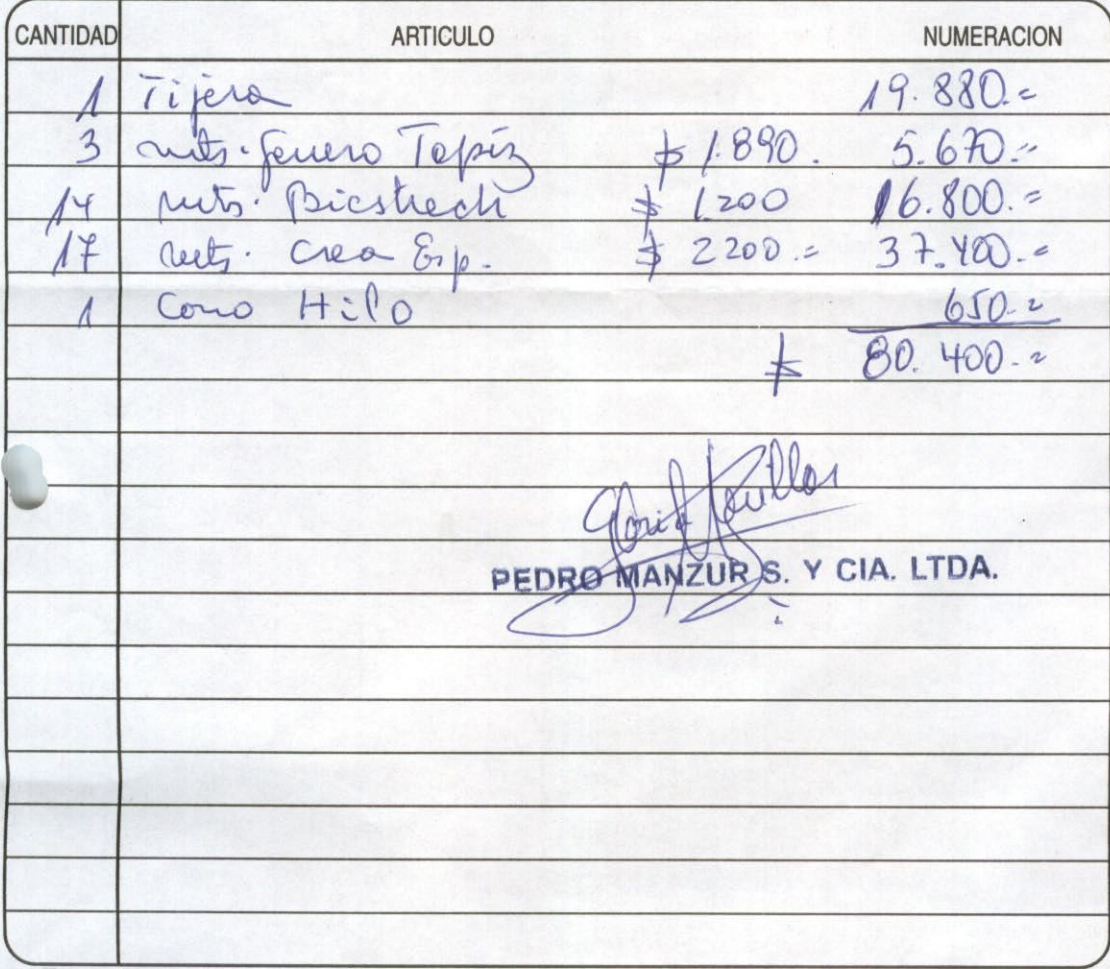 CANTIDAD ARTICULO NUMERACION
1 Tijera 19.880.=
3 mts. Genero Tapiz $ 1.890. 5.670.=
14 mts. Bicstrech $ 1200 16.800.=
17 mts. Crea Esp. $ 2200.= 37.400.=
1 Cono Hilo 650.=
$ 80.400.=
PEDRO MANZUR S. Y CIA. LTDA.